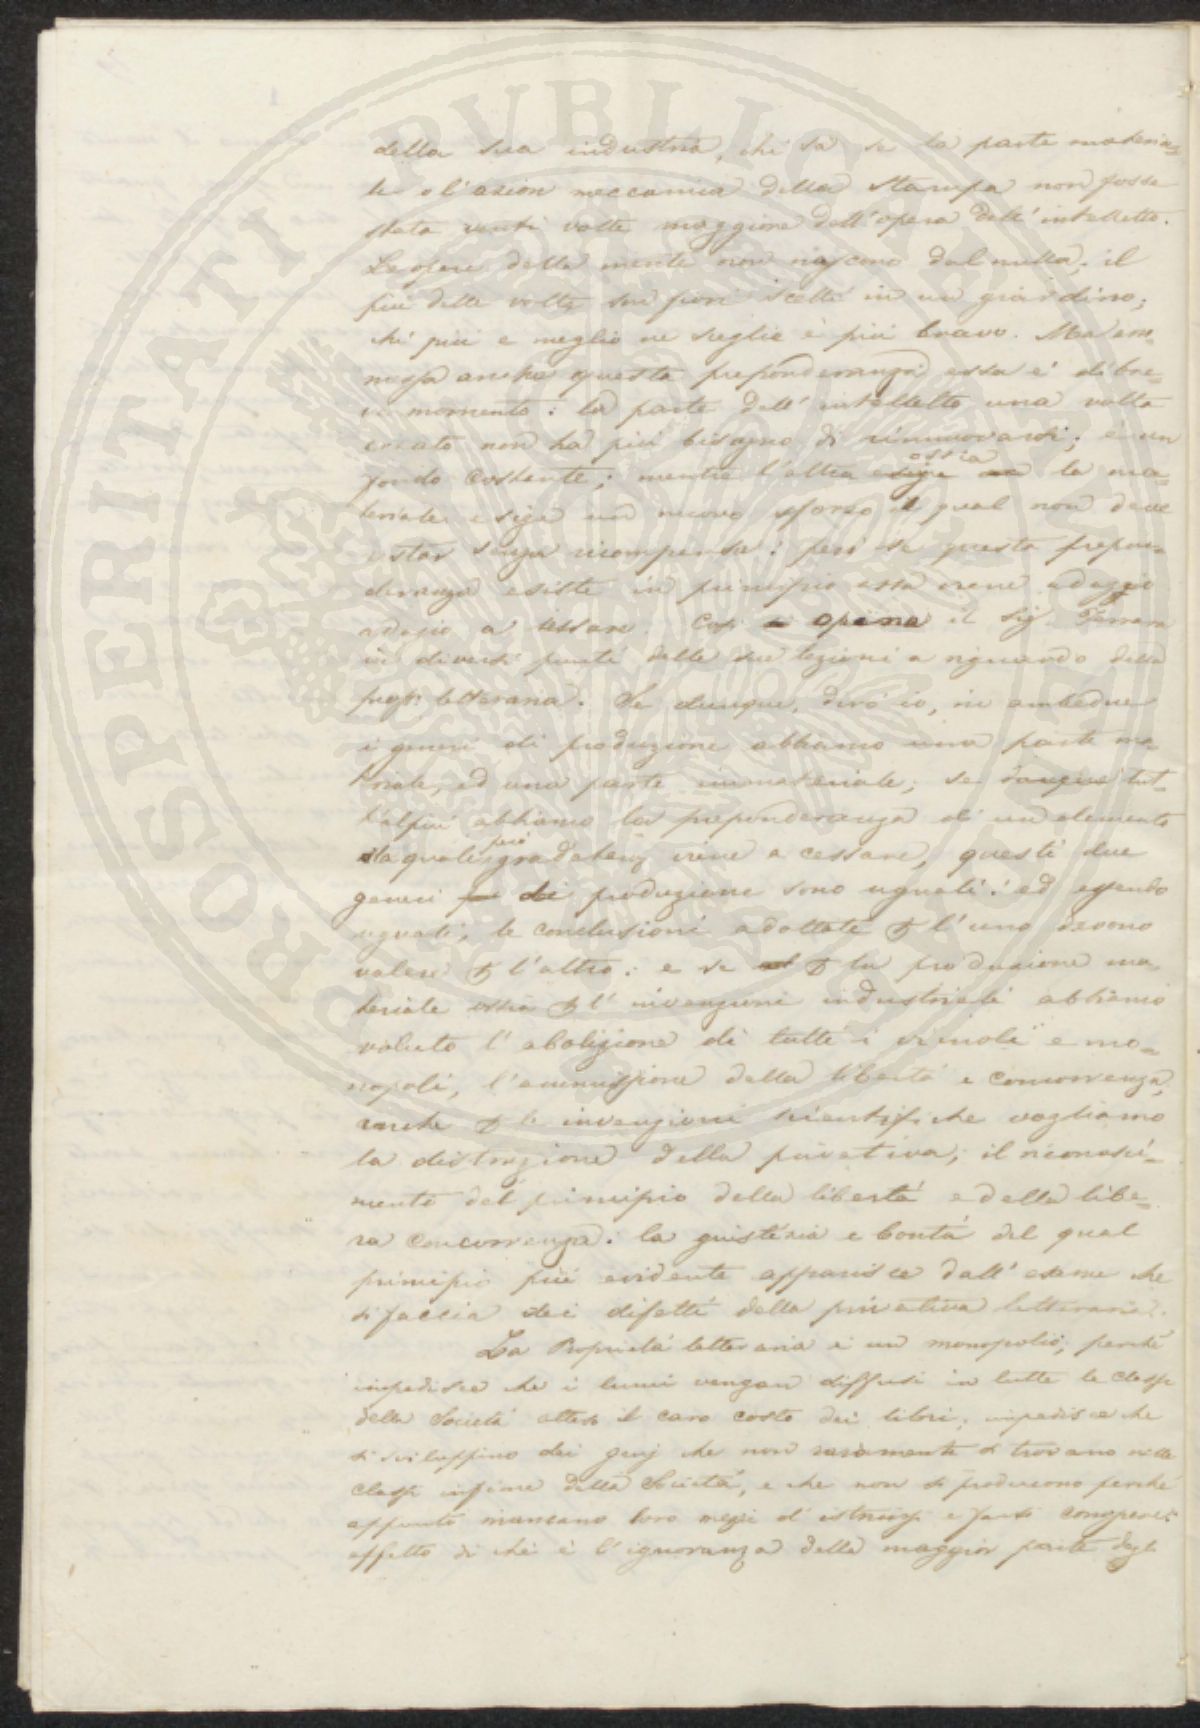 della sua industria, chi sa se la parte materia=
le o l'azion meccanica della stampa non fosse
stata venti volte maggiore dell'opera dell'intelletto.
Le opere della mente non nascono dal nulla; il
più delle volte son fiori scelti in un giardino;
chi più e meglio ne sceglie è più bravo. Ma am=
messa anche questa preponderanza essa è di bre=
ve momento: la parte dell'intelletto una volta
creato non ha più bisogno di rinnuovarsi; è un
fondo costante; mentre l'altra esige ossia la ma=
teriale esige un nuovo sforzo il qual non deve
restar senza ricompensa: però se questa prepon=
deranza esiste in principio essa viene adagio
adagio a cessare. Così opina il Sig. Ferrara
in diversi punti delle sue lezioni a riguardo della
propr: letteraria. Se dunque, dirò io, in ambedue
i generi di produzione abbiamo una parte ma=
teriale, ed una parte immateriale; se dunque tut=
t'alpiù abbiamo la preponderanza di un elemento
la quale però gradatenz viene a cessare, questi due
generi di produzione sono uguali: ed essendo
uguali, le conclusioni adottate p l'uno devono
valere p l'altro: e se p la produzione ma=
teriale ossia p l'invenzioni industriali abbiamo
voluto l'abolizione di tutti i vincoli e mo=
nopoli, l'ammissione della libertà e concorrenza,
anche p le invenzioni scientifiche vogliamo
la distruzione della privativa; il riconosci=
mento del principio della libertà e della libe=
ra concorrenza: la giustizia e bontà del qual
principio più evidente apparisce dall'esame che
si faccia dei difetti della privativa letteraria.
La Proprietà letteraria è un monopolio; perchè
impedisce che i lumi vengan diffusi in tutte le classi
della Società atteso il caro costo dei libri; impedisce che
si sviluppino dei genj che non raramente si trovano nelle
classi infime della Società, e che non si producono perchè
appunto mancano loro mezzi d'istruirsi e farsi conoscere:
effetto di che è l'ignoranza della maggior parte degli